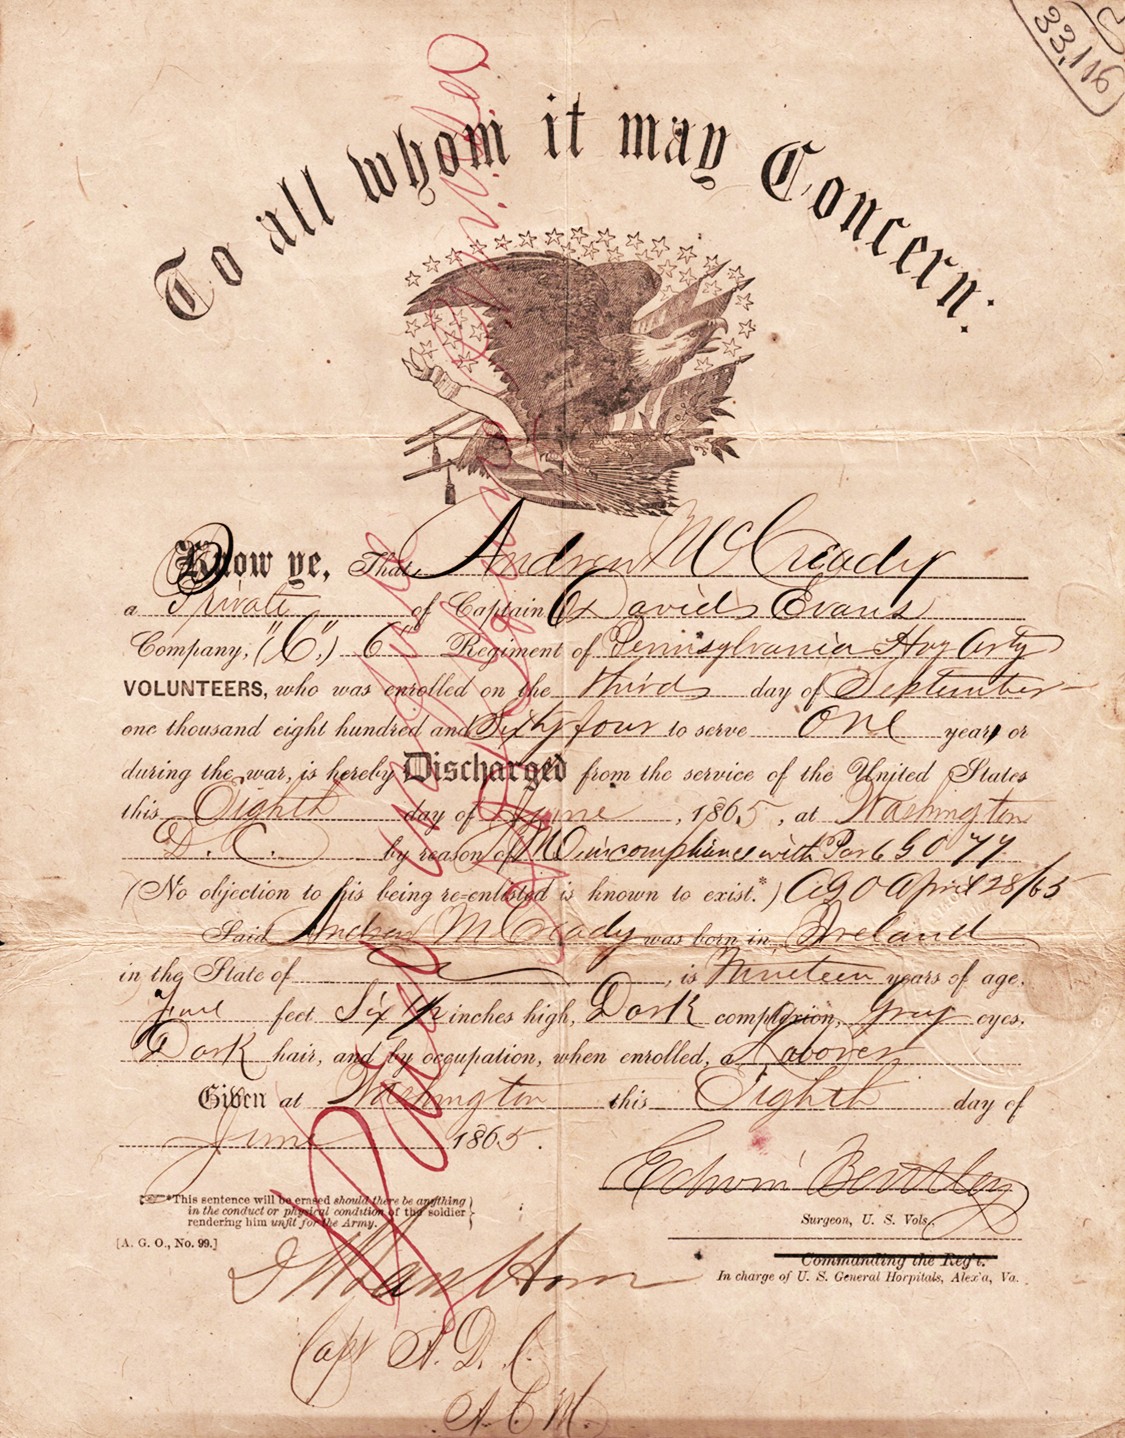 33,116
To all whom it may Concern:
Know ye, That Andrew McCready
a Private of Captain Davids Evans
Company, ("C",) 6" Regiment of Pennsylvania Hvy Arty
VOLUNTEERS, who was enrolled on the third day of September
one thousand eight hundred and Sixty four to serve one year, or
during the war, is hereby Discharged from the service of the United States
this Eighth day of June, 1865, at Washington
D. C. by reason of MO in compliance with Par 6 GO 77
(No objection to his being re-enlisted is known to exist.*) AGO April 28/65
Said Andrew McCready was born in Ireland
in the State of , is Nineteen years of age,
five feet Six 1/2 inches high, Dark complexion, Gray eyes,
Dark hair, and by occupation, when enrolled, a Laborer
Given at Washington this Eighth day of
June 1865.
Edwin Bentley
Surgeon, U. S. Vols.,
Commanding the Reg't.
In charge of U. S. General Horpitals, Alex'a, Va.
*This sentence will be erased should there be anything
in the conduct or physical condition of the soldier
rendering him unfit for the Army.
[A. G. O., No. 99.]
Van Horn
Capt A. D. C.
A. C. M.
Paid in full